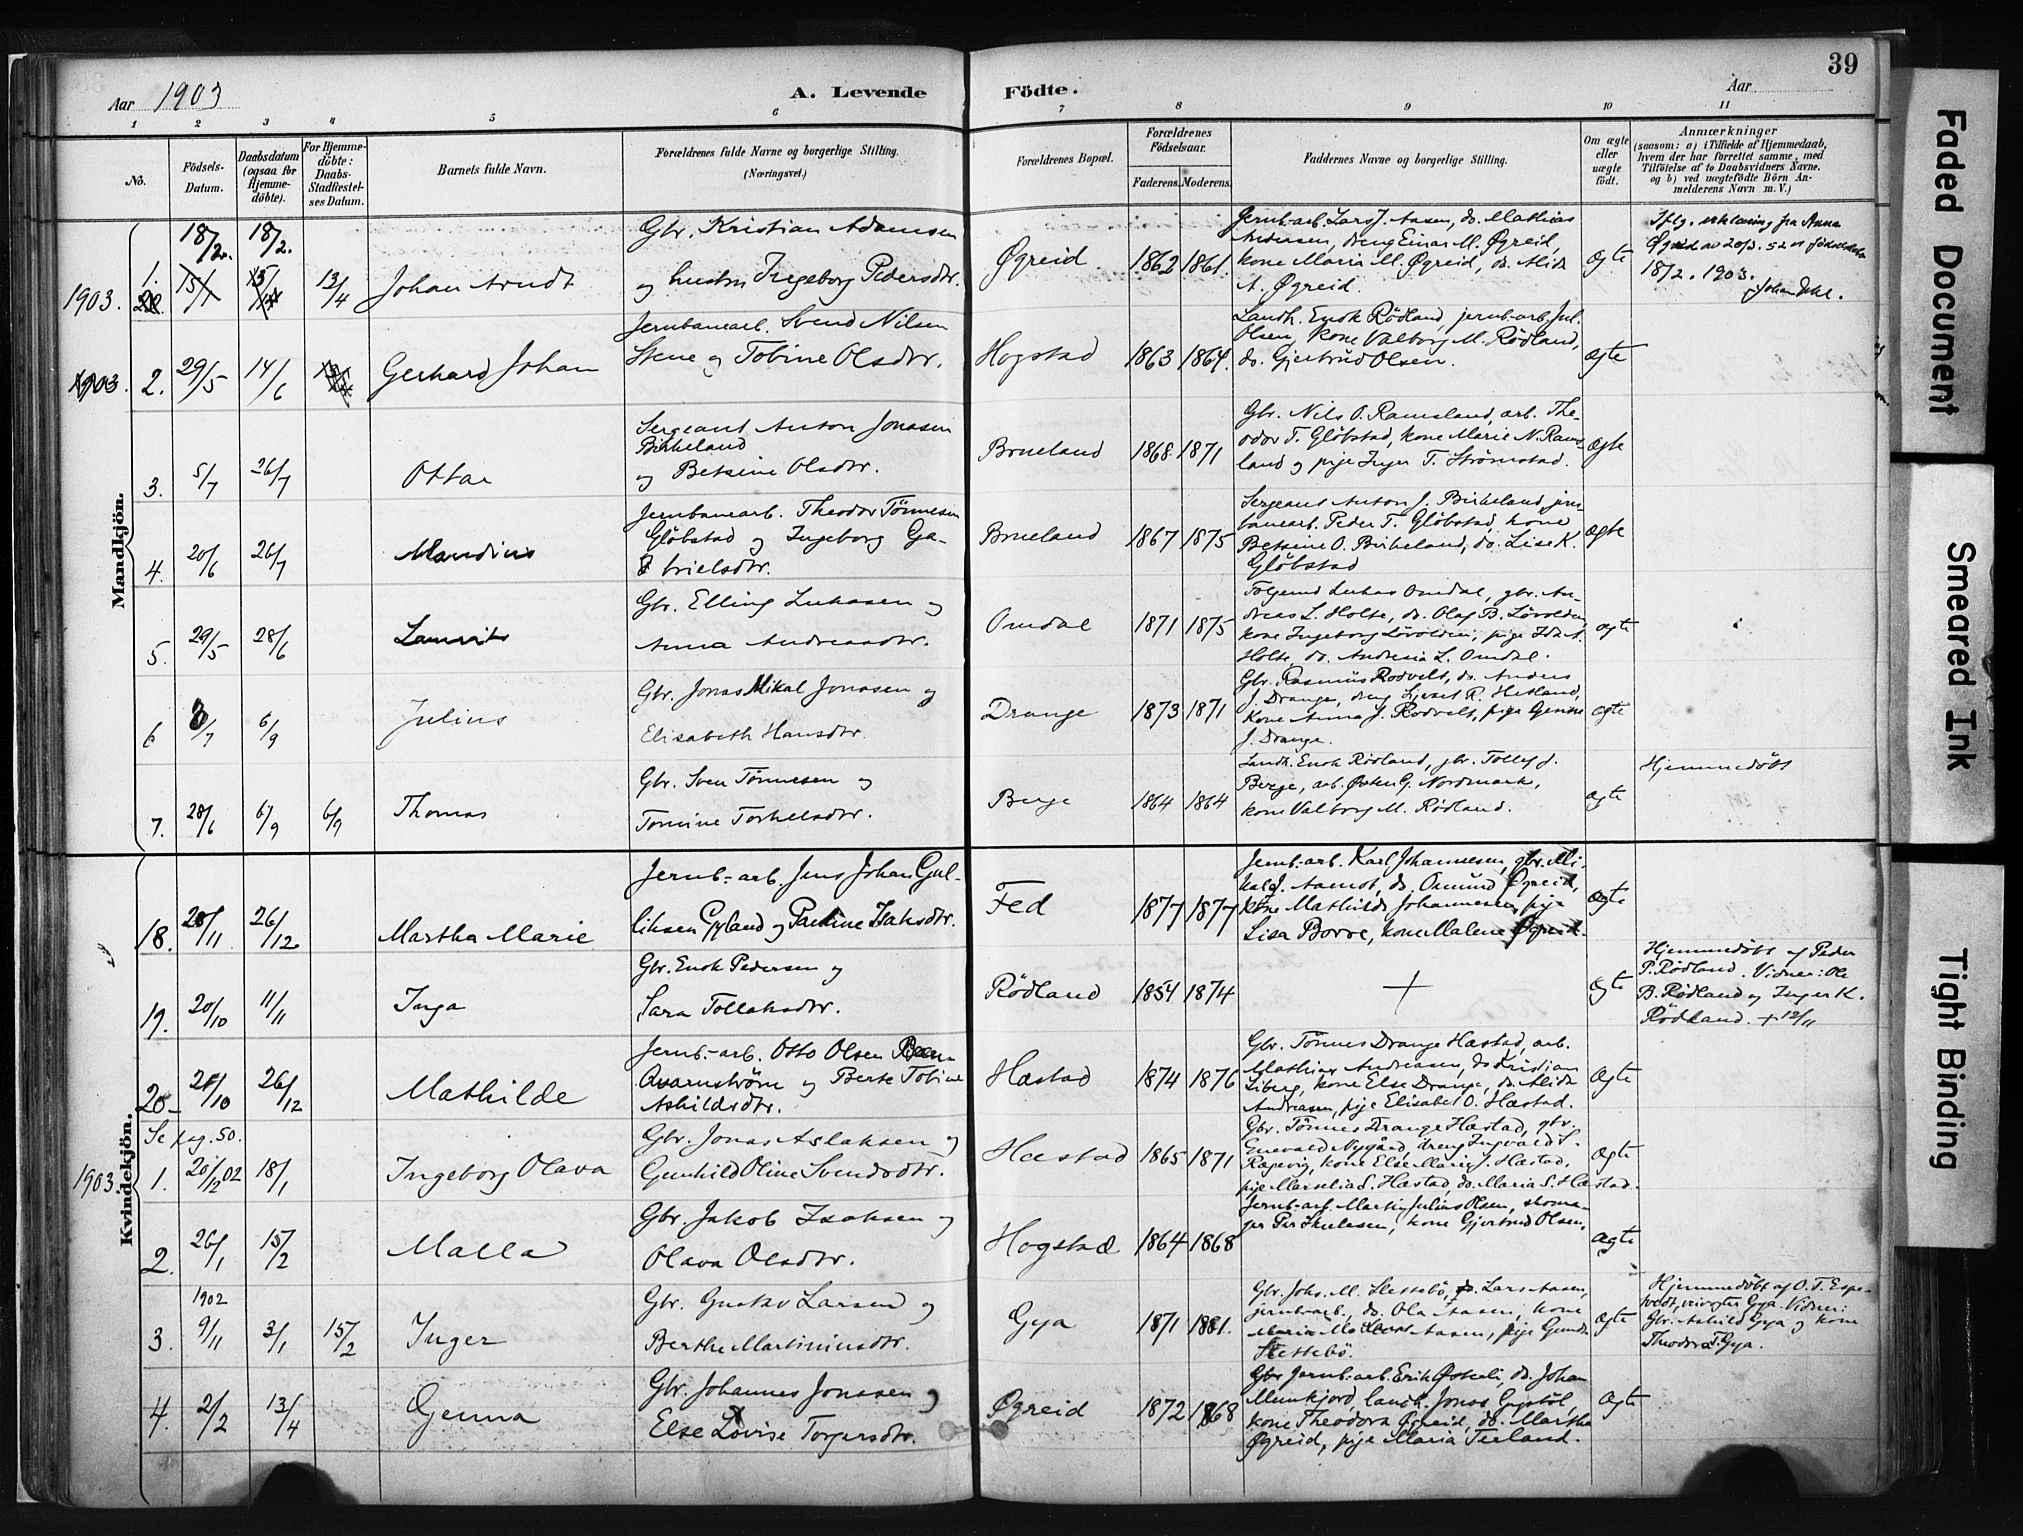 Aar 1903
A. Levende
Fødte.
Aar
39
1 2 3 4 5 6 7 8 9 10 11
No.
Fødsels-Datum.
Daabsdatum (ogsaa for Hjemme-døbte).
For Hjemme-døbte: Daabs-Stadfæstel-ses Datum.
Barnets fulde Navn.
Forældrenes fulde Navne og borgerlige Stilling. (Næringsvei.)
Forældrenes Bopæl.
Forældrenes Fødselsaar.
Faderens. Moderens.
Faddernes Navne og borgerlige Stilling.
Om ægte eller uægte født.
Anmærkninger
(saasom: a) i Tilfælde af Hjemmedaab,
hvem der har forrettet samme, med
Tilføielse af to Daabsvidners Navne.
og b) ved uægtefødte Børn An-
melderens Navn m. V.)
Mandkjön.
Kvindekjön.
1903. 1. 18/2. 18/2. 13/4 Johan Arndt
Gbr. Kristian Adamsen
og hustru Ingeborg Pedersdtr.
Øgreid 1862 1861.
Jernb-arb. Lars J. Aasen, do. Mathias
Andreasen, dreng Einar M. Øgreid,
kone Maria M. Øgreid, do. Alida
A. Øgreid.
ægte
Iflg. erklæring fra Anna
Øgreid av 20/3. 52 er fødselsdato
18/2. 1903.
1903. 2. 29/5 14/6 Gerhard Johan
Jernbanearb. Svend Nilsen
Stene og Tobine Olsdtr.
Hogstad 1863 1864.
Landh. Enok Rødland, jernb-arb. Jul.
Olsen, kone Valborg M. Rødland,
do. Gjertrud Olsen.
ægte
3. 5/7 26/7 Ottar
Sergeant Anton Jonasen
Birkeland
og Betsine Olsdtr.
Brueland 1868 1871
Gbr. Nils O. Ramsland, arb. The-
odor T. Gløbstad, kone Marie N. Rams-
land og pige Inger T. Strømstad.
ægte
4. 20/6 26/7 Mandius
Jernbanearb. Theodor Tønnesen
Gløbstad og Ingeborg Ga-
brielsdtr.
Brueland 1867 1875
Sergeant Anton J. Birkeland, jern-
banearb. Peder T. Gløbstad, kone
Betsine O. Birkeland, do. Lise K.
Gløbstad
ægte
5. 29/5 28/6 Lauvits
Gbr. Elling Lukasen og
Anna Andreasdtr.
Omdal 1871 1875
Følgemd Lukas Omdal, gbr. An-
dreas L. Holte, do. Olaf B. Løvolden,
kone Ingeborg Løvolden, pige Ida A.
Holte, do. Andrea L. Omdal.
ægte
6 3/7 6/9 Julius
Gbr. Jonas Mikal Jonasen og
Elisabeth Hansdtr.
Drange 1873 1871
Gbr. Rasmus Rodvelt, do. Anders
J. Drange, dreng Sjevat R. Hetland,
Kone Anna J. Rodvelt, pige Gemine
J. Drange.
ægte
7. 28/6 6/9 6/9 Thomas
Gbr. Sven Tønnesen og
Tomine Torkelsdtr.
Berge 1864 1864
Landh. Enok Rødland, gbr. Tollef J.
Berge, arb. Østen G. Nordmark,
kone Valborg M. Rødland.
ægte
Hjemmedøbt
18. 28/11 26/12 Martha Marie
Jernb.-arb. Jens Johan Gul-
liksen Gyland og Pauline Isaksdtr.
Fed 1877 1877
Jernb-arb. Karl Johannesen, gbr. Mi-
kal J. Aamot, do. Osmund Øgreid,
kone Mathilde Johannesen, pige
Lisa Borve, kone Malene Øgreid.
ægte
19. 20/10 11/11 Inga
Gbr. Enok Pedersen og
Sara Tollaksdtr.
Rødland 1854 1874
+
ægte
Hjemmedøbt af Peder
P. Rødland. Vidner: Ole
B. Rødland og Inger K.
Rødland. + 12/11
20- 21/10 26/12 Mathilde
Jernb.-arb. Otto Olsen
Qvarnstrøm og Berte Tobine
Askildsdtr.
Hæstad 1874 1876
Gbr. Tønnes Drange Hæstad, arb.
Mathias Andreasen, do Kristian
Liberg, kone Else Drange, do. Alida
Andreasen, pige Elisabet O. Hæstad.
ægte
Se pag. 50.
1903. 1. 20/12 02 18/1 Ingeborg Olava
Gbr. Jonas Aslaksen og
Gunhild Oline Svendsdtr.
Hæstad 1865 1871
Gbr. Tønnes Drange Hæstad, gbr.
Enevald Nygård, dreng Ingvald S.
Rægevig, kone Else Marie J. Hæstad,
pige Marselia S. Hæstad, do. Maria S. Hæstad.
ægte
2. 26/1 15/2 Malla
Gbr. Jakob Isaksen og
Olava Olsdtr.
Hogstad 1864 1868
Jernb-arb. Martin Julius Olsen, skoma-
ger Per Skulesen, kone Gjertrud Olsen.
ægte
3. 1902 9/11 3/1 15/2 Inger
Gbr. Gustav Larsen og
Berthe Martiniusdtr.
Gya 1871 1881.
Gbr. Johs. M. Slettebö, Lars Aasen,
jernb-arb., do. Ola Aasen, kone
Maria Aasen, pige Gunda
Slettebö.
ægte
Hjemmedøbt af O. T. Espe-
tvedt, veivogter Gya. Vidner:
Gbr. Askild Gya og kone
Theodora T. Gya.
4. 2/2 13/4 Gema
Gbr. Johannes Jonassen og
Else Lovise Torgersdtr.
Øgreid 1872 1868
Jernb-arb. Erik Øskeli, do. Johan
Munkjord, landh. Jonas Gystøl,
kone Theodora Øgreid, do. Martha
Øgreid, pige Maria Terland.
ægte
Faded Document
Smeared Ink
Tight Binding